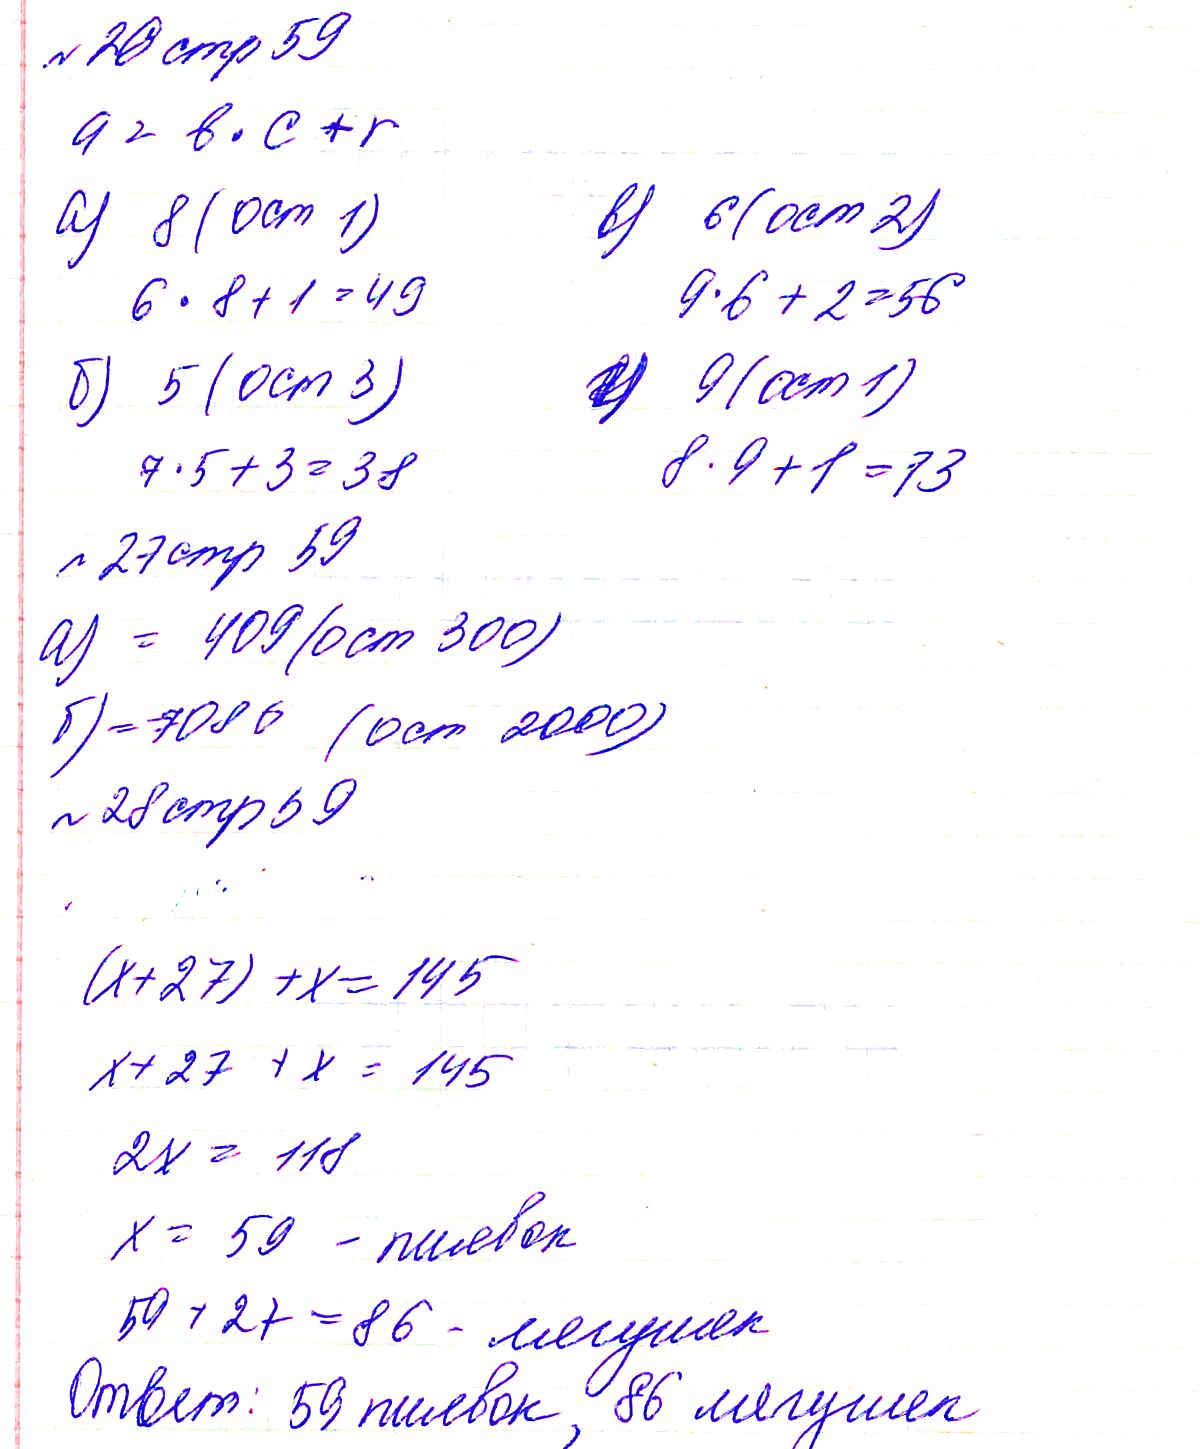 №20 стр 59
a = в · c + r
а) 8 (ост 1)
6 · 8 + 1 = 49
б) 5 (ост 3)
7 · 5 + 3 = 38
в) 6 (ост 2)
9 · 6 + 2 = 56
г) 9 (ост 1)
8 · 9 + 1 = 73
№27 стр 59
а) = 409 (ост 300)
б) = 7086 (ост 2000)
№28 стр 59
(x + 27) + x = 145
x + 27 + x = 145
2x = 118
x = 59 - пиявок
59 + 27 = 86 - лягушек
Ответ: 59 пиявок, 86 лягушек